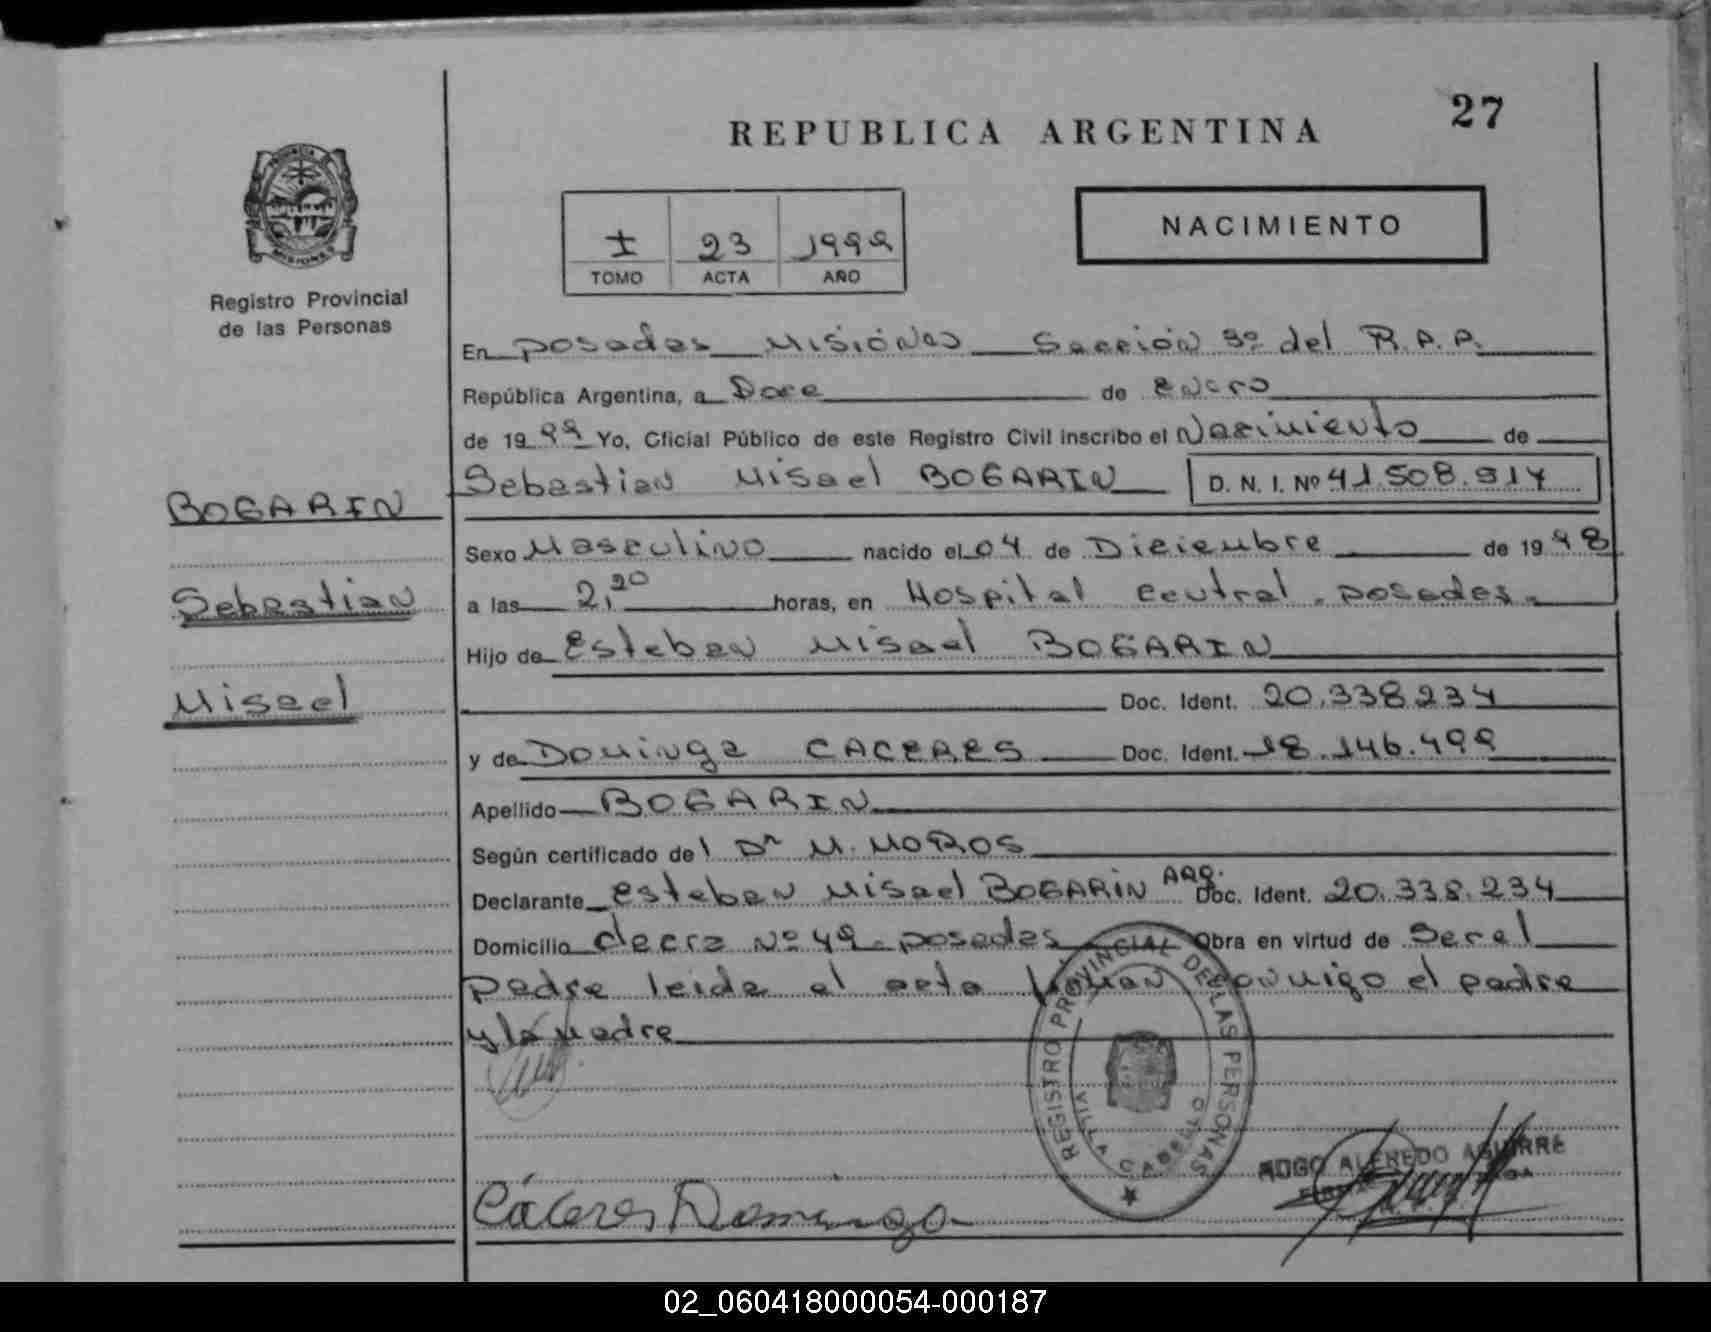 27
REPUBLICA ARGENTINA
NACIMIENTO
I 23 1999
TOMO ACTA AÑO
PROVINCIA DE MISIONES
Registro Provincial
de las Personas
BOGARIN
Sebastian
Misael
En Posadas Misiónes Sección 3º del R.P.P.
República Argentina, a Doce de enero
de 19 99 Yo, Oficial Público de este Registro Civil inscribo el Nacimiento de
Sebastian Misael BOGARIN D. N. I. Nº 41.508.917
Sexo Masculino nacido el 04 de Diciembre de 19 98
a las 2,20 horas, en Hospital Central. Posadas.
Hijo de Esteban Misael BOGARIN
Doc. Ident. 20.338.234
y de Dominga CACERES Doc. Ident. 18.146.499
Apellido BOGARIN
Según certificado del Dr M. MOROS
Declarante Esteban Misael BOGARIN ARG. Doc. Ident. 20.338.234
Domicilio chacra Nº 49. Posadas Obra en virtud de Ser el
Padre leida el acta firman conmigo el padre
y la Madre
REGISTRO PROVINCIAL DE LAS PERSONAS
VILLA CABELLO
HUGO ALFREDO AGUIRRE
Cáceres Dominga
02_060418000054-000187